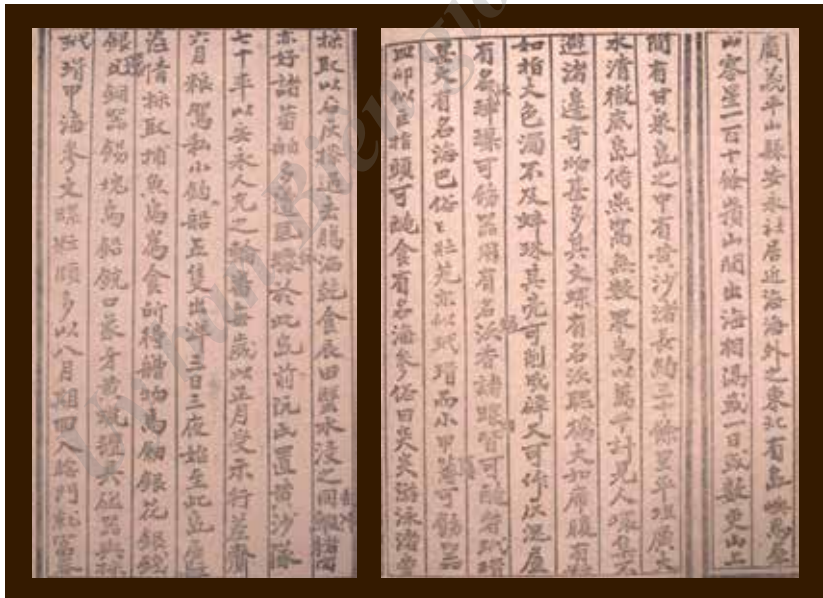 廣義平山縣安永社居近海海外之東北有島嶼焉羣
山零星一百十餘嶺山間出海相隔或一日或數更山上
間有甘泉島之中有黃沙渚長約三十餘里平坦廣大
水清徹底島傍燕窩無數衆鳥以萬千計見人環集不
避渚邊奇物甚多其文螺有名沃聰橫大如席腹有粒
如指大色濁不及蚌珠其壳可削成碑又可作灰泥屋
有名硨磲可飾器用有名沃香諸螺皆可醃煮玳瑁
甚大有名海巴俗曰壯芃亦似玳瑁而小甲薄可飾器
皿卵似巨指頭可醃食有名海參俗曰突突游泳渚旁
採取以石灰擦過去腸洒乾食辰田蟹水浸之同蝦猪肉
亦好諸蕃舶多遭風於此島前阮氏置黃沙隊
七十率以安永人充之輪番每歲以正月受示行差齎
六月粮駕私小釣船五隻出洋三日三夜始至此島居
恣情採取捕魚鳥爲食所得艚物馬鈎銀花銀錢
銀環銅器錫塊烏鉛銃口象牙黃蠟氊具磁器與採
玳瑁甲海參文螺粒頗多以八月期回入腰門就富春